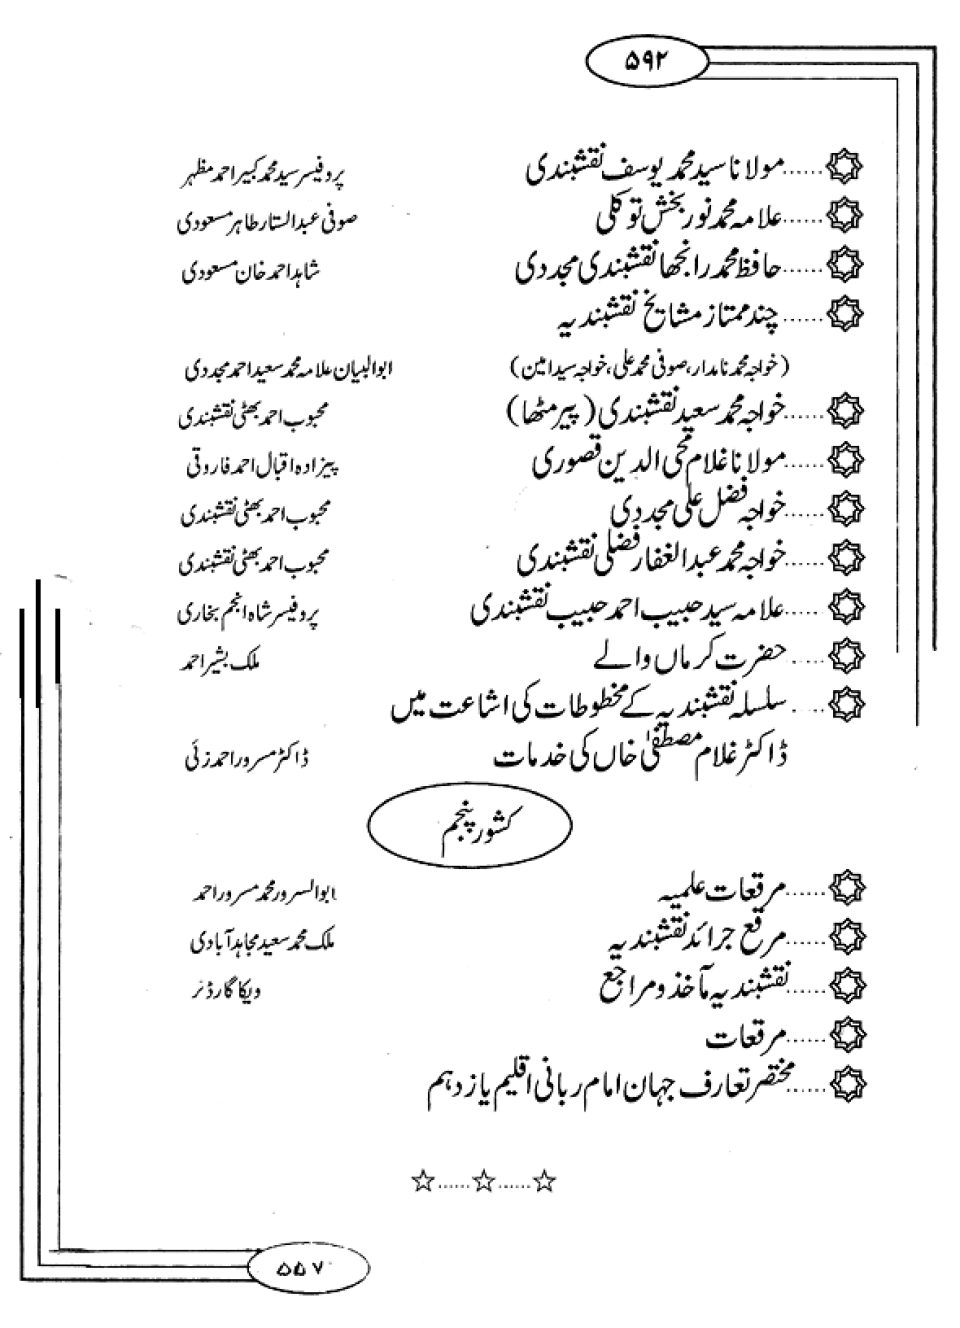 ۵۹۲
......مولانا سید محمد یوسف نقشبندی پروفیسر سید محمد کبیر احمد مظہر
......علامہ محمد نور بخش توکلی صوفی عبدالستار طاہر مسعودی
......حافظ محمد رانجھا نقشبندی مجددی شاہد احمد خان مسعودی
......چند ممتاز مشایخ نقشبندیہ
(خواجہ محمد نامدار، صوفی محمد علی، خواجہ سید امین) ابوالبیان علامہ محمد سعید احمد مجددی
......خواجہ محمد سعید نقشبندی (پیر مٹھا) محبوب احمد بھٹی نقشبندی
......مولانا غلام محی الدین قصوری پیرزادہ اقبال احمد فاروقی
......خواجہ فضل علی مجددی محبوب احمد بھٹی نقشبندی
......خواجہ محمد عبدالغفار فضلی نقشبندی محبوب احمد بھٹی نقشبندی
......علامہ سید حبیب احمد حبیب نقشبندی پروفیسر شاہ انجم بخاری
......حضرت کرماں والے ملک بشیر احمد
......سلسلہ نقشبندیہ کے مخطوطات کی اشاعت میں
ڈاکٹر غلام مصطفیٰ خاں کی خدمات ڈاکٹر مسرور احمد زئی
کشور پنجم
......مرقعات علمیہ ابوالسرور محمد مسرور احمد
......مرقع جرائد نقشبندیہ ملک محمد سعید مجاہد آبادی
......نقشبندیہ مآخذ و مراجع ویکا گارڈنر
......مرقعات
......مختصر تعارف جہان امام ربانی اقلیم یازدہم
☆......☆......☆
۵۵۷